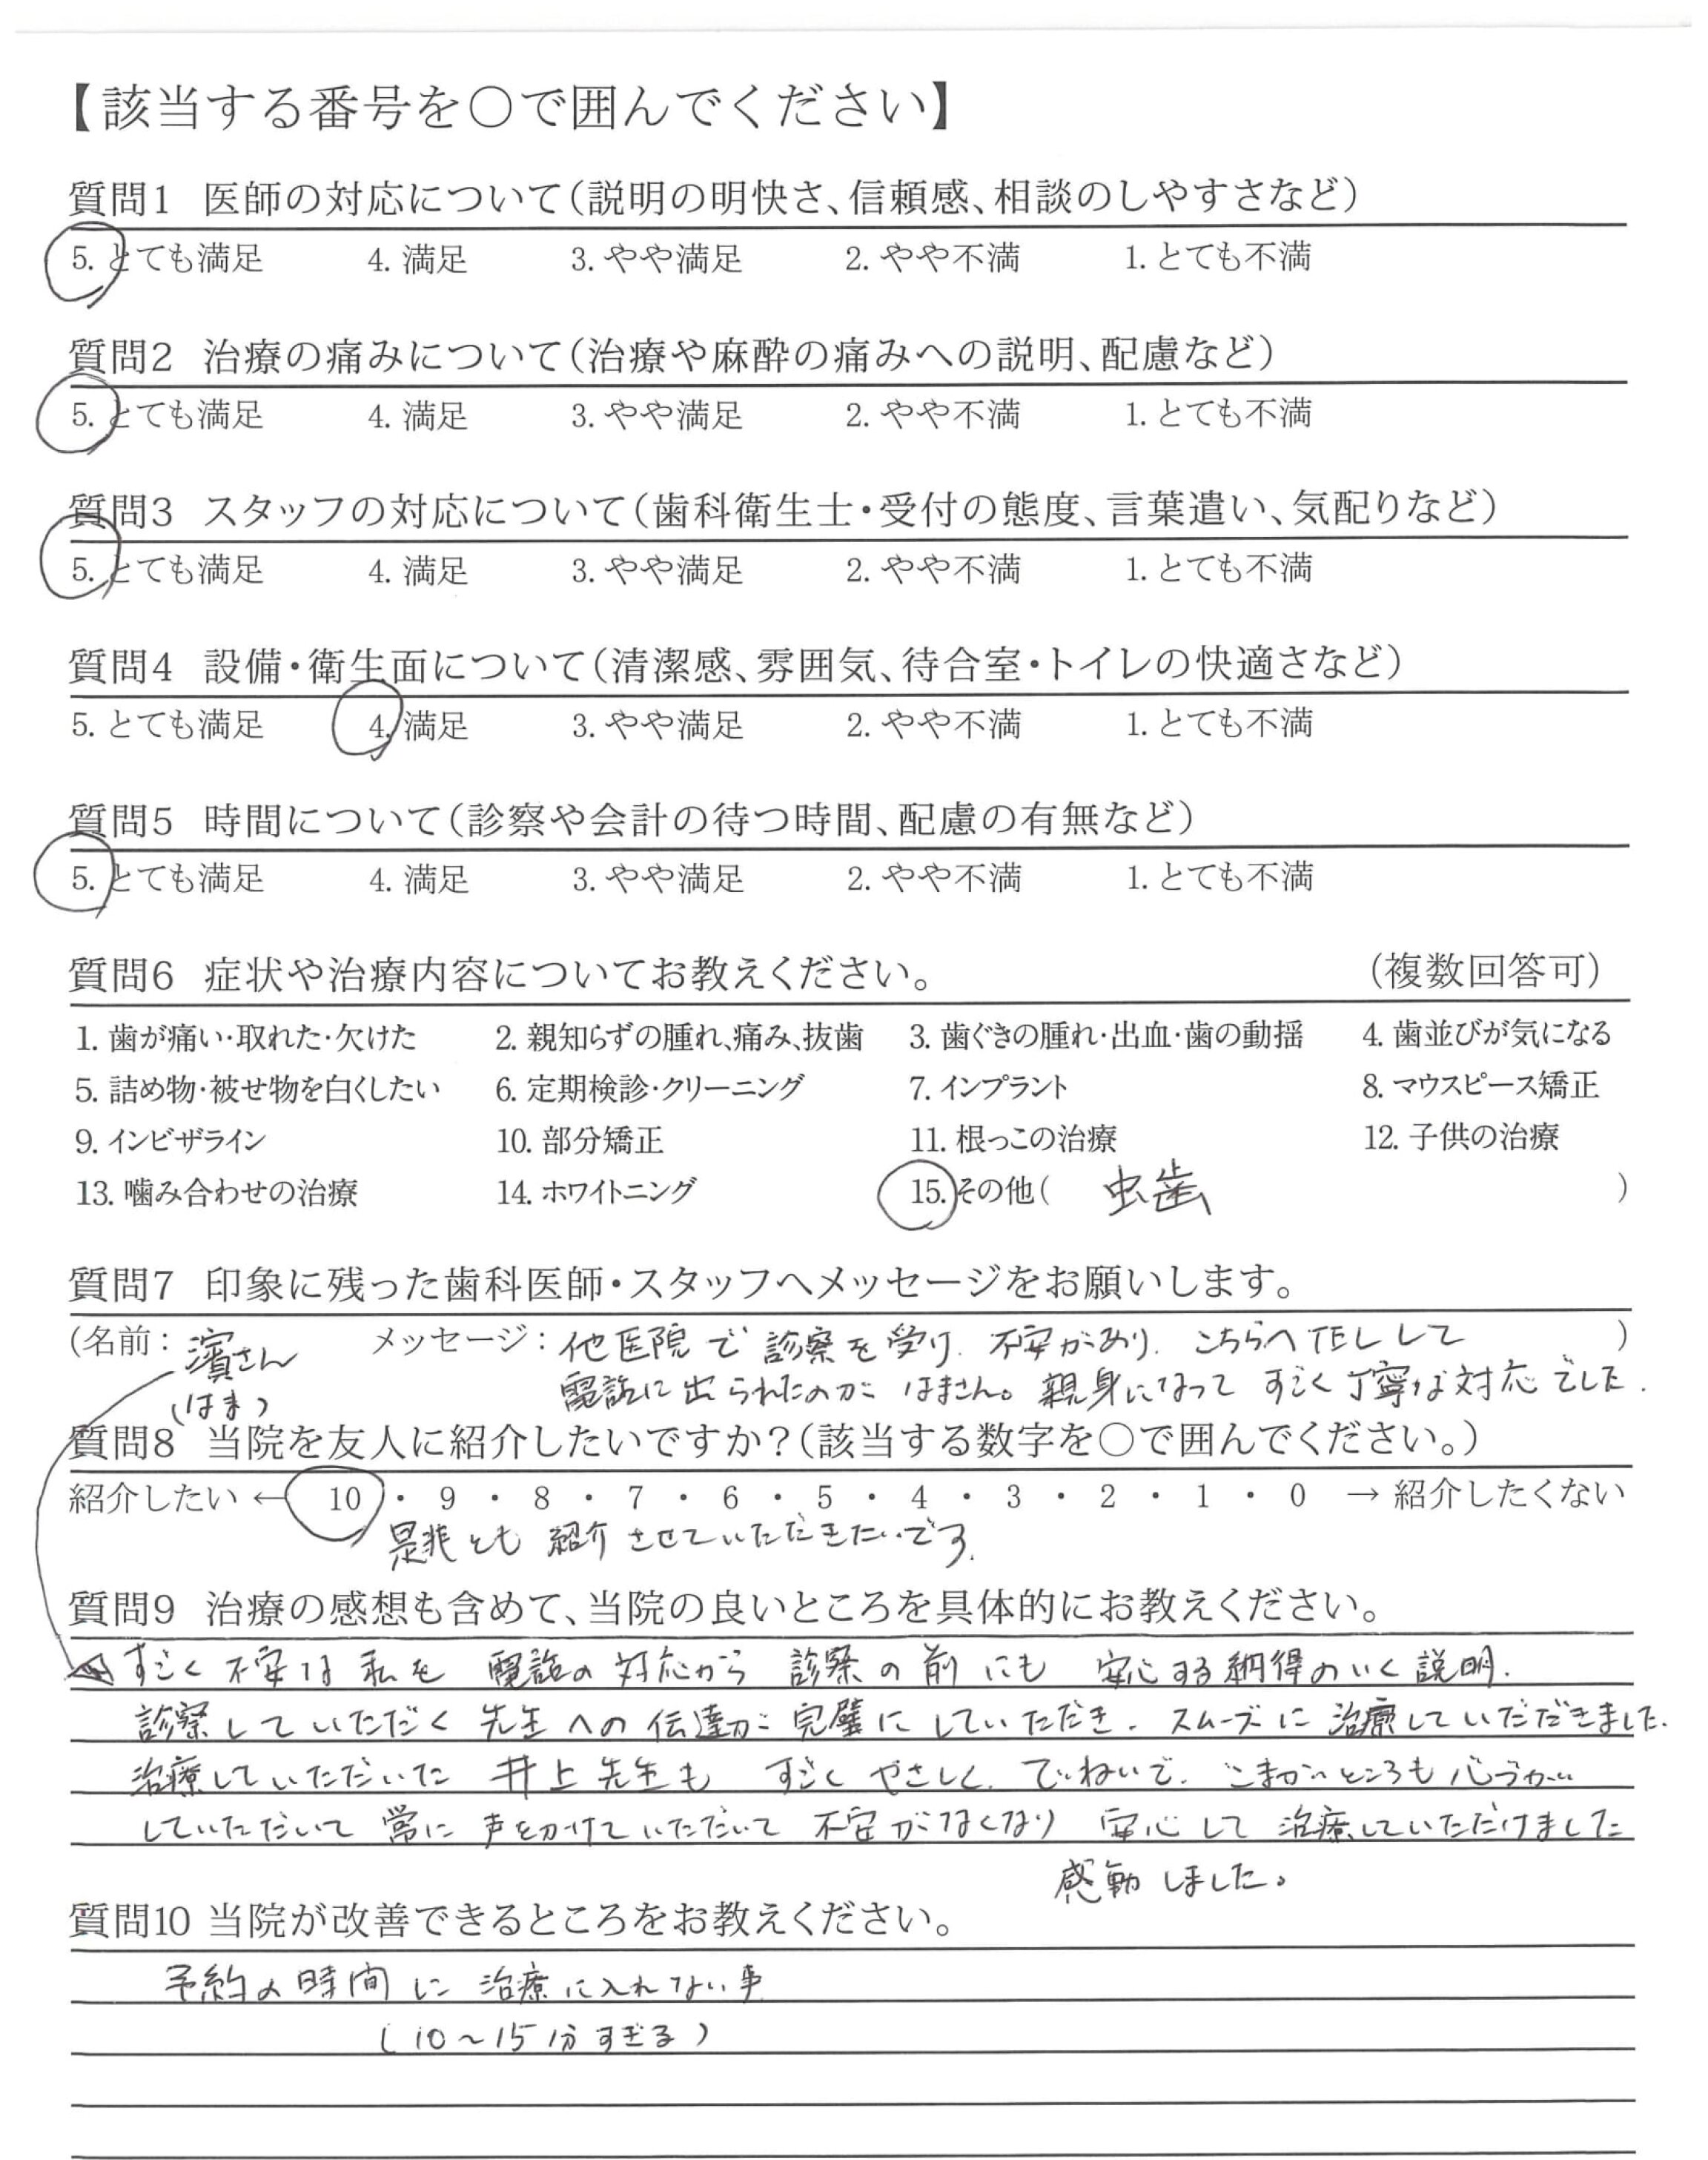 【該当する番号を○で囲んでください】
質問1 医師の対応について(説明の明快さ、信頼感、相談のしやすさなど)
5. とても満足 4. 満足 3. やや満足 2. やや不満 1. とても不満
質問2 治療の痛みについて(治療や麻酔の痛みへの説明、配慮など)
5. とても満足 4. 満足 3. やや満足 2. やや不満 1. とても不満
質問3 スタッフの対応について(歯科衛生士・受付の態度、言葉遣い、気配りなど)
5. とても満足 4. 満足 3. やや満足 2. やや不満 1. とても不満
質問4 設備・衛生面について(清潔感、雰囲気、待合室・トイレの快適さなど)
5. とても満足 4. 満足 3. やや満足 2. やや不満 1. とても不満
質問5 時間について(診察や会計の待つ時間、配慮の有無など)
5. とても満足 4. 満足 3. やや満足 2. やや不満 1. とても不満
質問6 症状や治療内容についてお教えください。 (複数回答可)
1. 歯が痛い・取れた・欠けた 2. 親知らずの腫れ、痛み、抜歯 3. 歯ぐきの腫れ・出血・歯の動揺 4. 歯並びが気になる
5. 詰め物・被せ物を白くしたい 6. 定期検診・クリーニング 7. インプラント 8. マウスピース矯正
9. インビザライン 10. 部分矯正 11. 根っこの治療 12. 子供の治療
13. 噛み合わせの治療 14. ホワイトニング 15. その他( 虫歯 )
質問7 印象に残った歯科医師・スタッフへメッセージをお願いします。
(名前: 濱さん メッセージ: 他医院で診察を受け、不安があり、こちらへTELして )
(はま) 電話に出られたのがはまさん。親身になってすごく丁寧な対応でした.
質問8 当院を友人に紹介したいですか?(該当する数字を○で囲んでください。)
紹介したい ← 10 ・ 9 ・ 8 ・ 7 ・ 6 ・ 5 ・ 4 ・ 3 ・ 2 ・ 1 ・ 0 → 紹介したくない
是非とも紹介させていただきたいです.
質問9 治療の感想も含めて、当院の良いところを具体的にお教えください。
すごく不安な私を電話の対応から診察の前にも安心する納得のいく説明.
診察していただく先生への伝達が完璧にしていただき. スムーズに治療していただきました.
治療していただいた井上先生もすごくやさしく、ていねいで、こまかいところも心づかい
していただいて常に声をかけていただいて不安がなくなり安心して治療していただけました
感動しました。
質問10 当院が改善できるところをお教えください。
予約の時間に治療に入れない事
(10~15分すぎる)